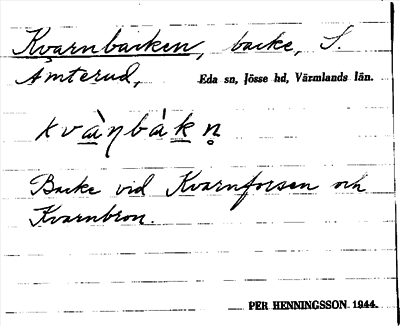 Kvarnbacken, backe, S.
Åmterud, Eda sn, Jösse hd, Värmlands län.
kvàηbàkn̥
Backe vid Kvarnforsen och
Kvarnbron.
PER HENNINGSSON 1944.